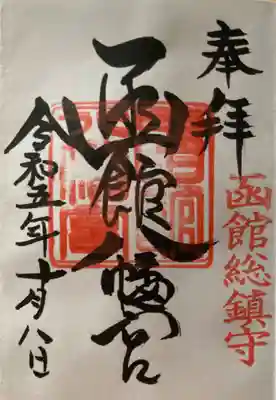 奉拝
函館総鎮守
函館八幡宮
令和五年十月八日